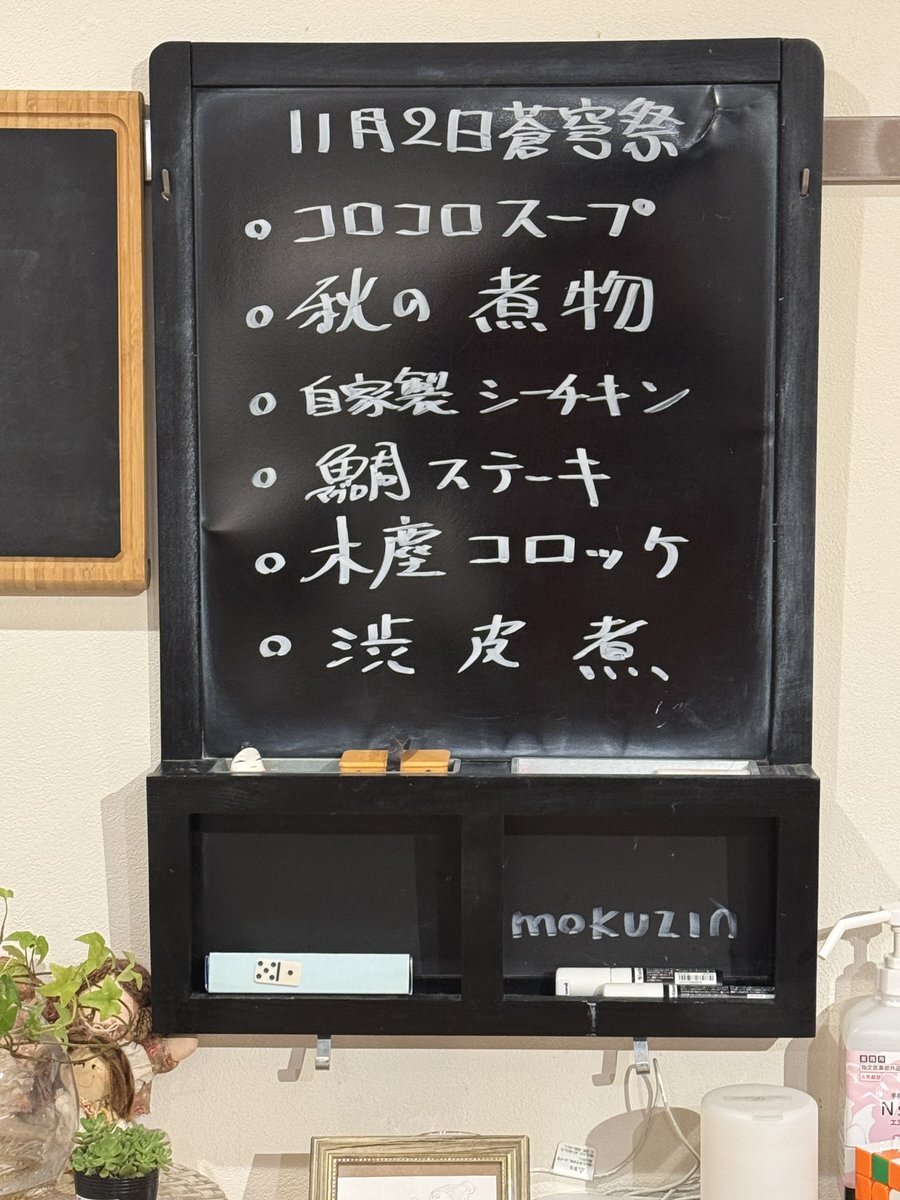 11月2日蒼穹祭
○ コロコロスープ
○ 秋の煮物
○ 自家製シーチキン
○ 鯛ステーキ
○ 木塵コロッケ
○ 渋皮煮
mokuzin
業務用
指定医薬部外品